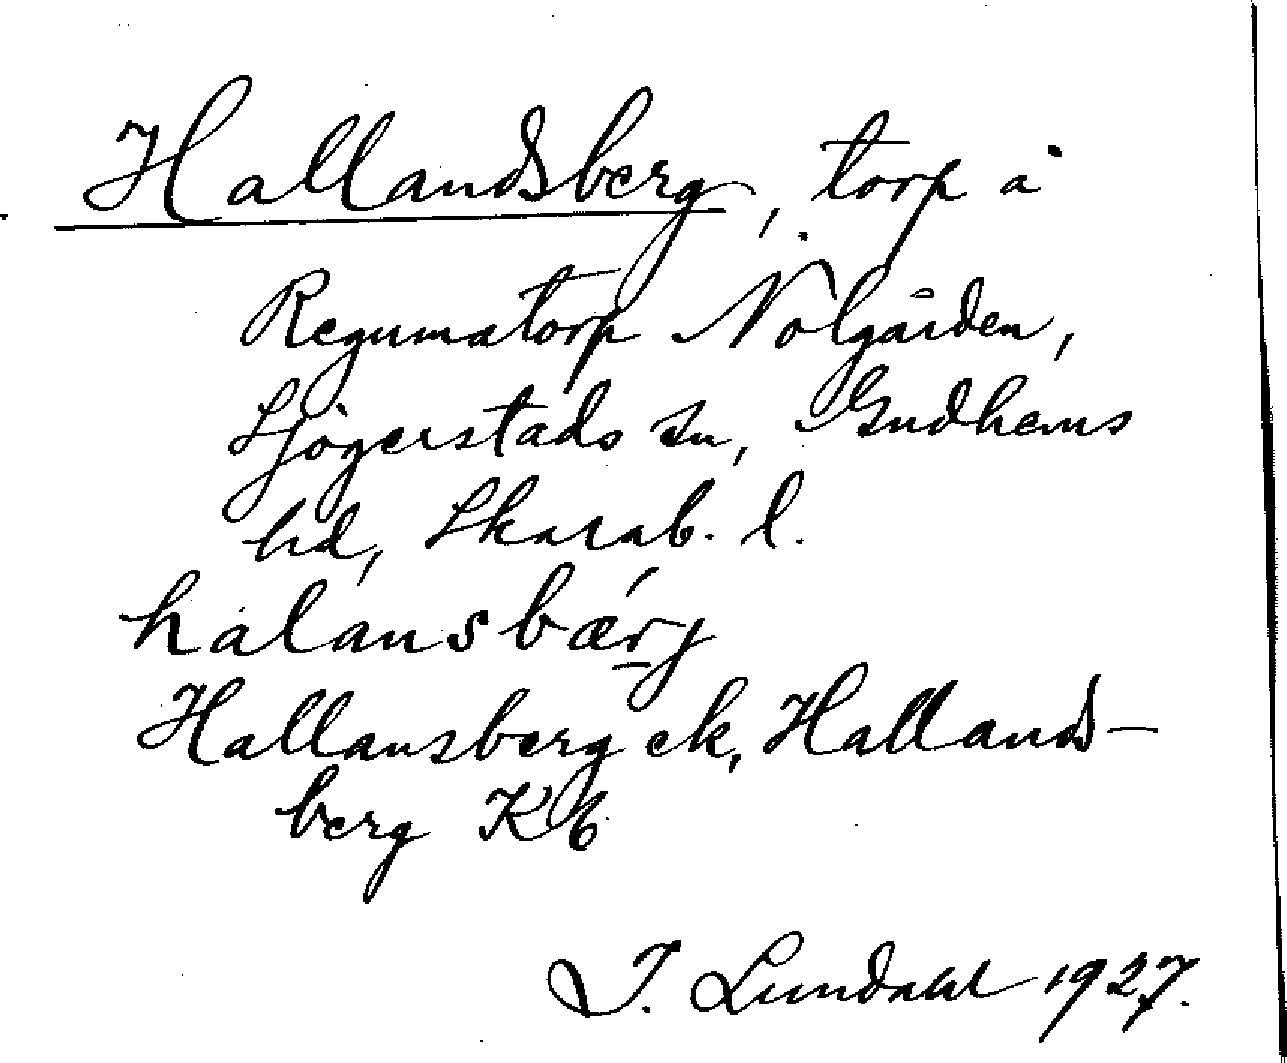 Hallandsberg, torp å
Regumatorp Nolgården,
Sjögerstads sn, Gudhems
hd, Skarab. l.
halansbærj
Hallansberg ek, Hallands-
berg Kb
I. Lundahl 1927.